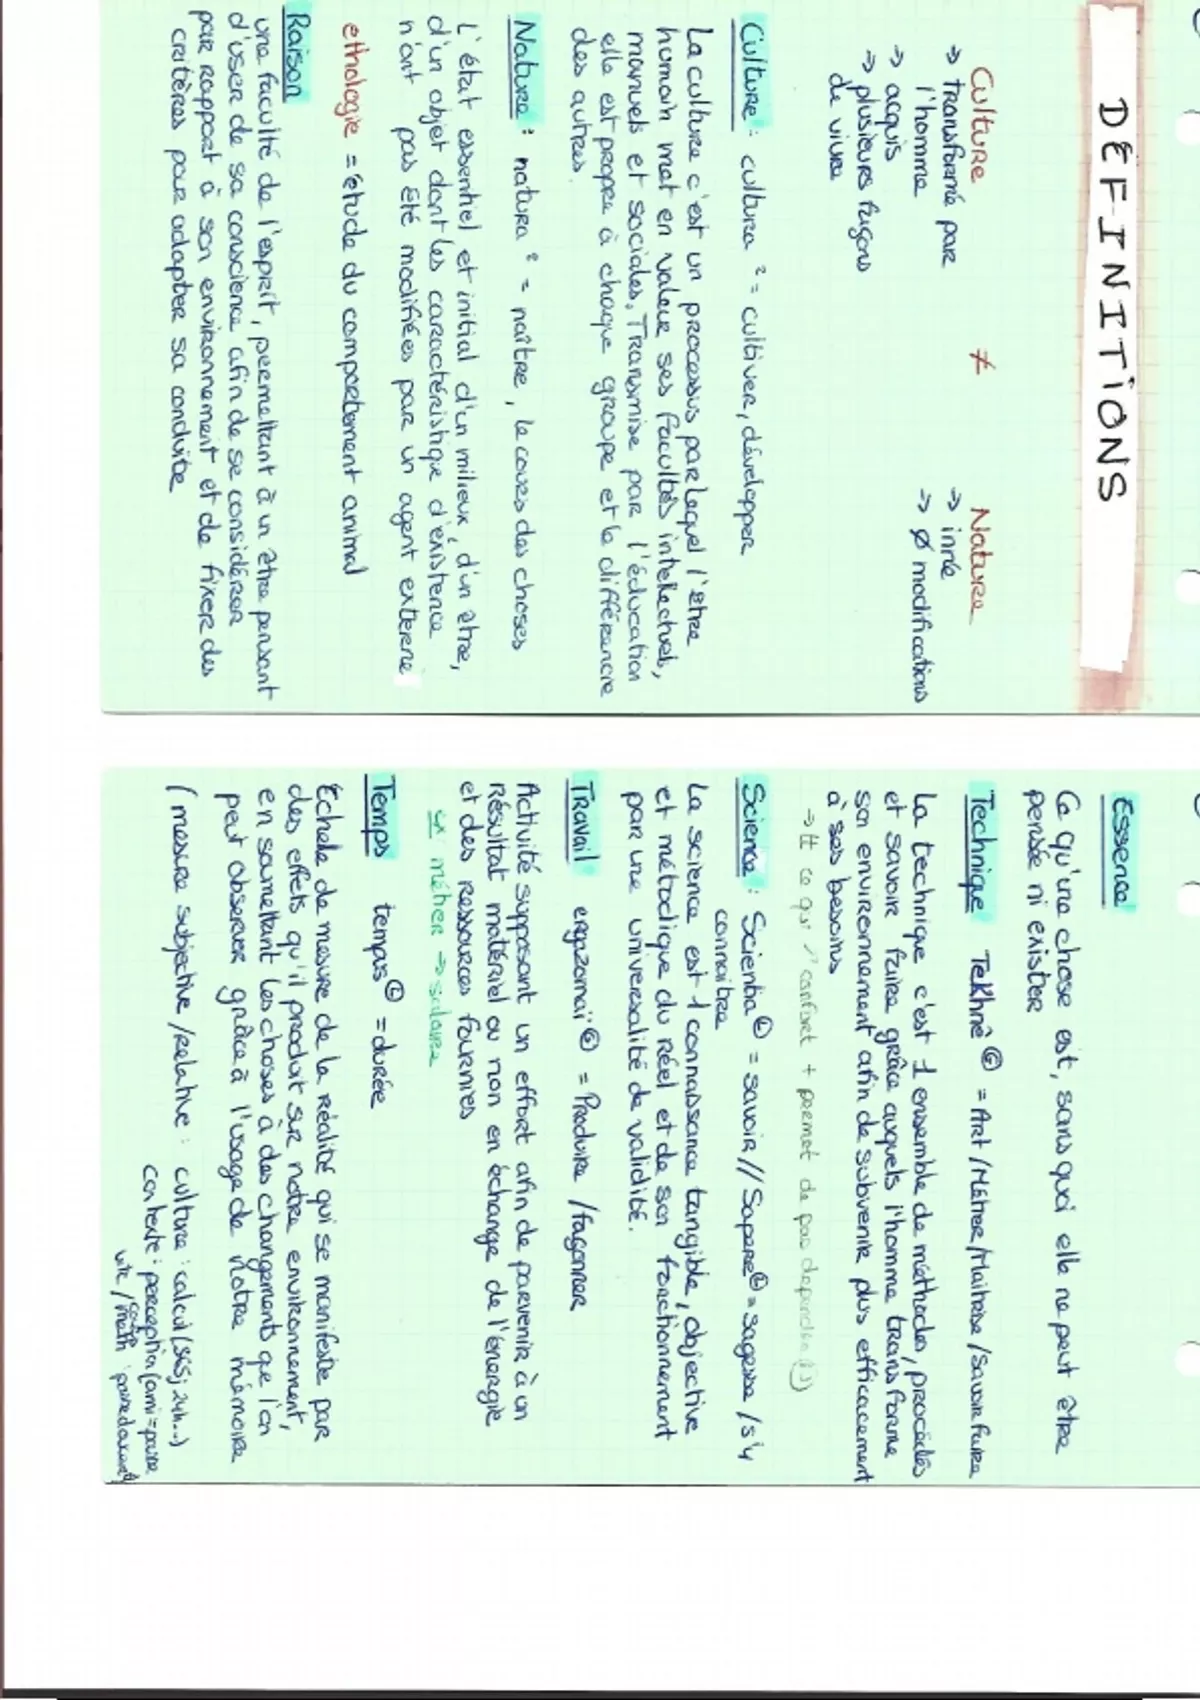 DEFINITIONS
Culture ≠ Nature
→ transformé par l'homme
→ acquis
→ plusieurs façons de vivre
→ innée
→ Ø modifications
Culture : cultura ² = cultiver, développer
La culture c'est un processus par lequel l'être
humain met en valeur ses facultés intellectuels,
manuels et sociales. Transmise par l'éducation
elle est propre à chaque groupe et le différencie
des autres.
Nature : natura ² = naître, le cours des choses
L'état essentiel et initial d'un milieux, d'un être,
d'un objet dont les caractéristique d'existence
n'ont pas été modifiées par un agent externe
ethologie = étude du comportement animal
Raison
une faculté de l'esprit, permettant à un être pensant
d'user de sa conscience afin de se considérer
par rapport à son environnement et de fixer des
critères pour adapter sa conduite
Essence
Ce qu'une chose est, sans quoi elle ne peut être
pensée ni exister
Technique Tekhnê (G) = Art / Métier / Maitrise / Savoir faire
La technique c'est 1 ensemble de méthodes, procédés
et savoir faire grâce auxquels l'homme transforme
son environnement afin de subvenir plus efficacement
à ses besoins
→ tt ce qui ↗ confort + permet de pas dépendre
Science : Scientia (L) = savoir // Sapere (L) = sagesse / s'y
connaitre
La science est 1 connaissance tangible, objective
et métodique du réel et de son fonctionnement
par une universalité de validité.
Travail ergazomaï (G) = Produire / façonner
Activité supposant un effort afin de parvenir à un
Résultat matériel ou non en échange de l'énergie
et des ressources fournies
≠ métier → salaire
Temps tempus (L) = durée
Echelle de mesure de la réalité qui se manifeste par
des effets qu'il produit sur notre environnement,
en soumettant les choses à des changements que l'on
peut observer grâce à l'usage de notre mémoire
(mesure subjective / relative : culture : calcul (365j 24h...)
contexte : perception (ami = passe
vite / math : passe doucement)